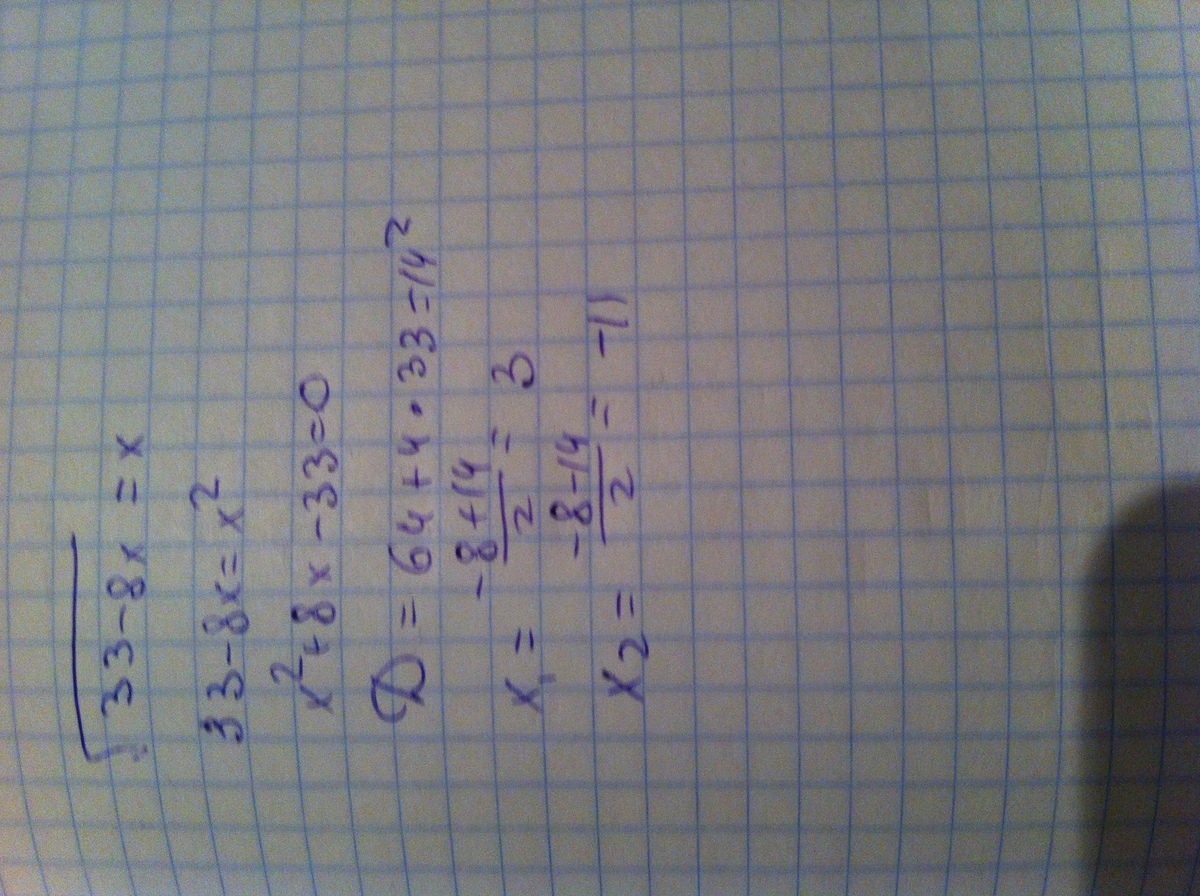 √33-8x = x
33-8x = x²
x²+8x-33=0
D = 64+4·33=14²
x₁ = (-8+14)/2 = 3
x₂ = (-8-14)/2 = -11